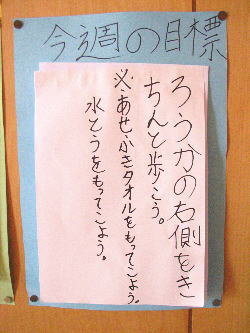 今週の目標
ろうかの右側をき
ちんと歩こう。
※あせふきタオルをもってこよう。
水とうをもってこよう。